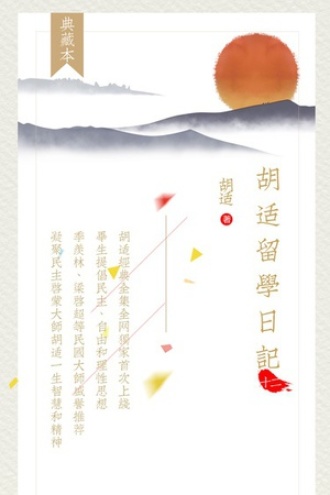 典藏本
胡适留學日記
十一
胡适
著
胡适經典全集全网獨家首次上綫
畢生提倡民主、自由和理性思想
季羨林、梁啓超等民國大師感譽推荐
凝聚民主啓蒙大師胡适一生智慧和精神